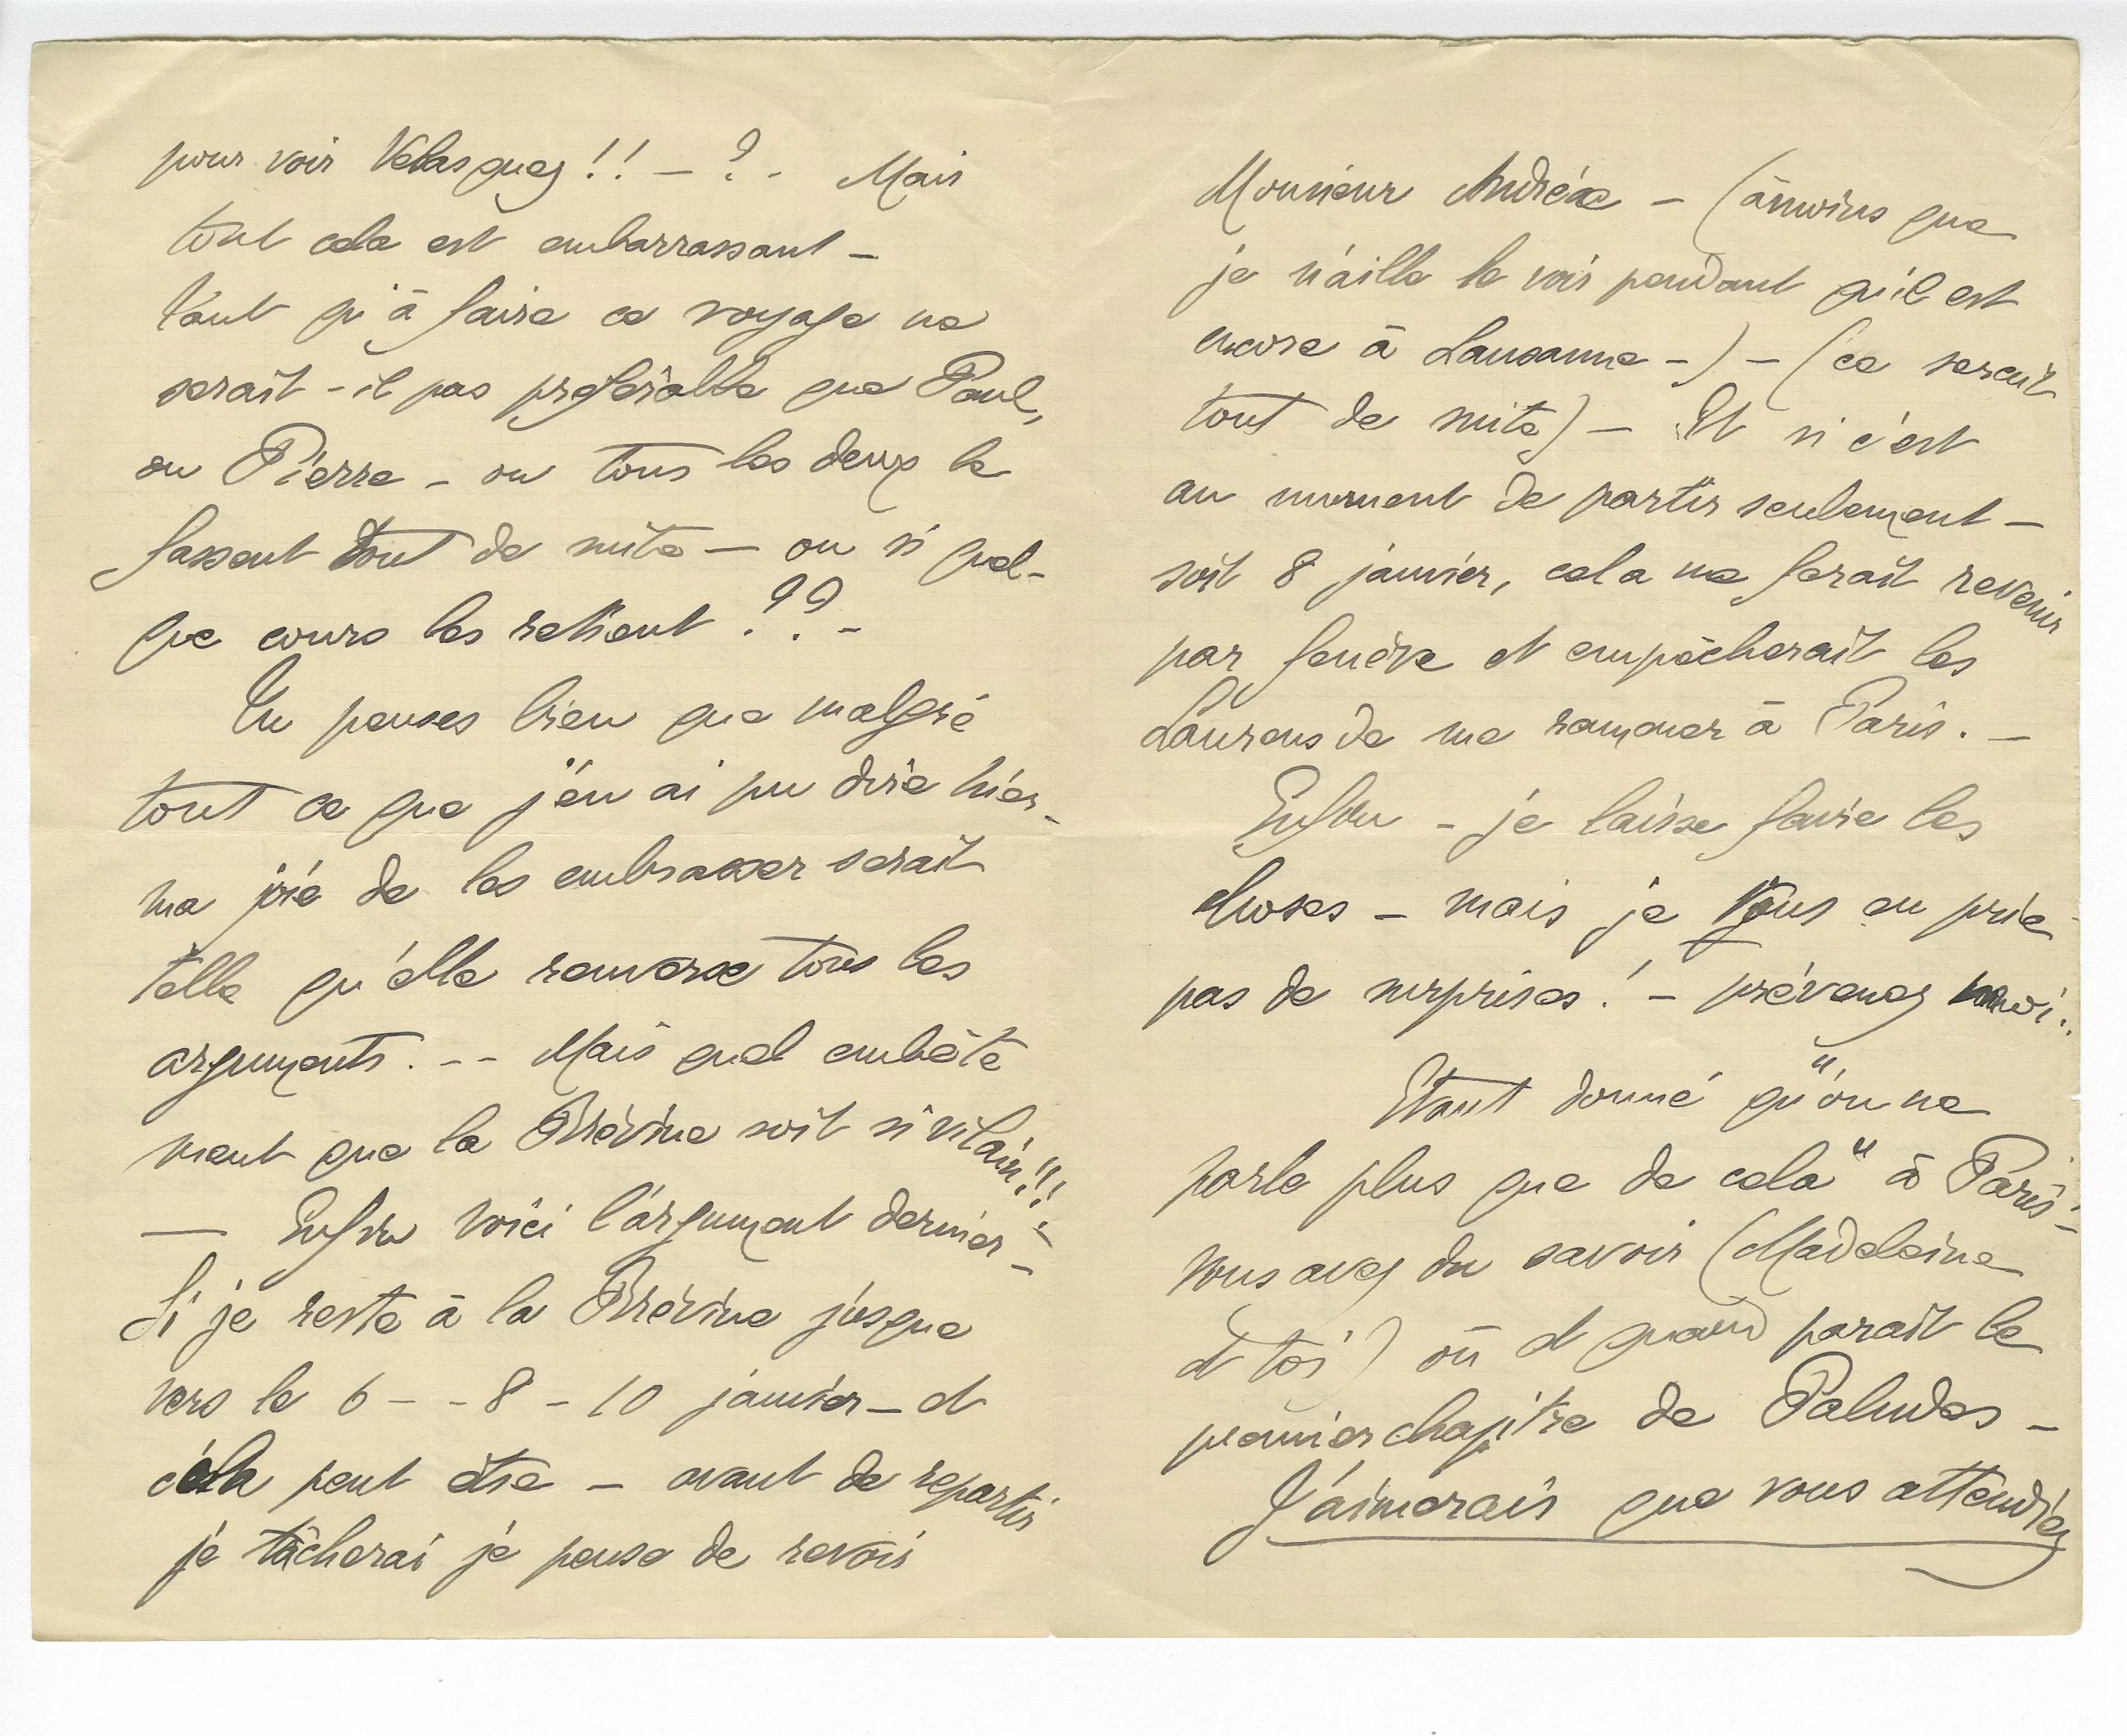 pour voir Velasquez !! – ? - Mais
tout cela est embarrassant –
Tant qu'à faire ce voyage ne
serait-il pas préférable que Paul,
ou Pierre – ou tous les deux le
fassent tout de suite – ou si quel-
que cours les retient ?? –
Tu penses bien que malgré
tout ce que j'en ai pu dire hier –
ma joie de les embrasser serait
telle qu'elle renverse tous les
arguments. -- Mais quel embête
ment que la Brévine soit si vilain!!!
— Enfin voici l'argument dernier –
Si je reste à la Brévine jusque
vers le 6 – - 8 – 10 janvier – et
cela peut être – avant de repartir
je tâcherai je pense de revoir
Monsieur Andréæ – (à moins que
je n'aille le voir pendant qu'il est
encore à Lausanne –) – (ce serait
tout de suite) – Et si c'est
au moment de partir seulement –
soit 8 janvier, cela me ferait revenir
par Genève et empêcherait les
Laurens de me ramener à Paris. –
Enfin – je laisse faire les
choses – mais je vous en prie
pas de surprises ! – prévenez moi..
Etant donné qu'"on ne
parle plus que de cela" à Paris –
vous avez du savoir (Madeleine
et toi) où et quand paraît le
premier chapitre de Paludes –
J'aimerais que vous attendiez